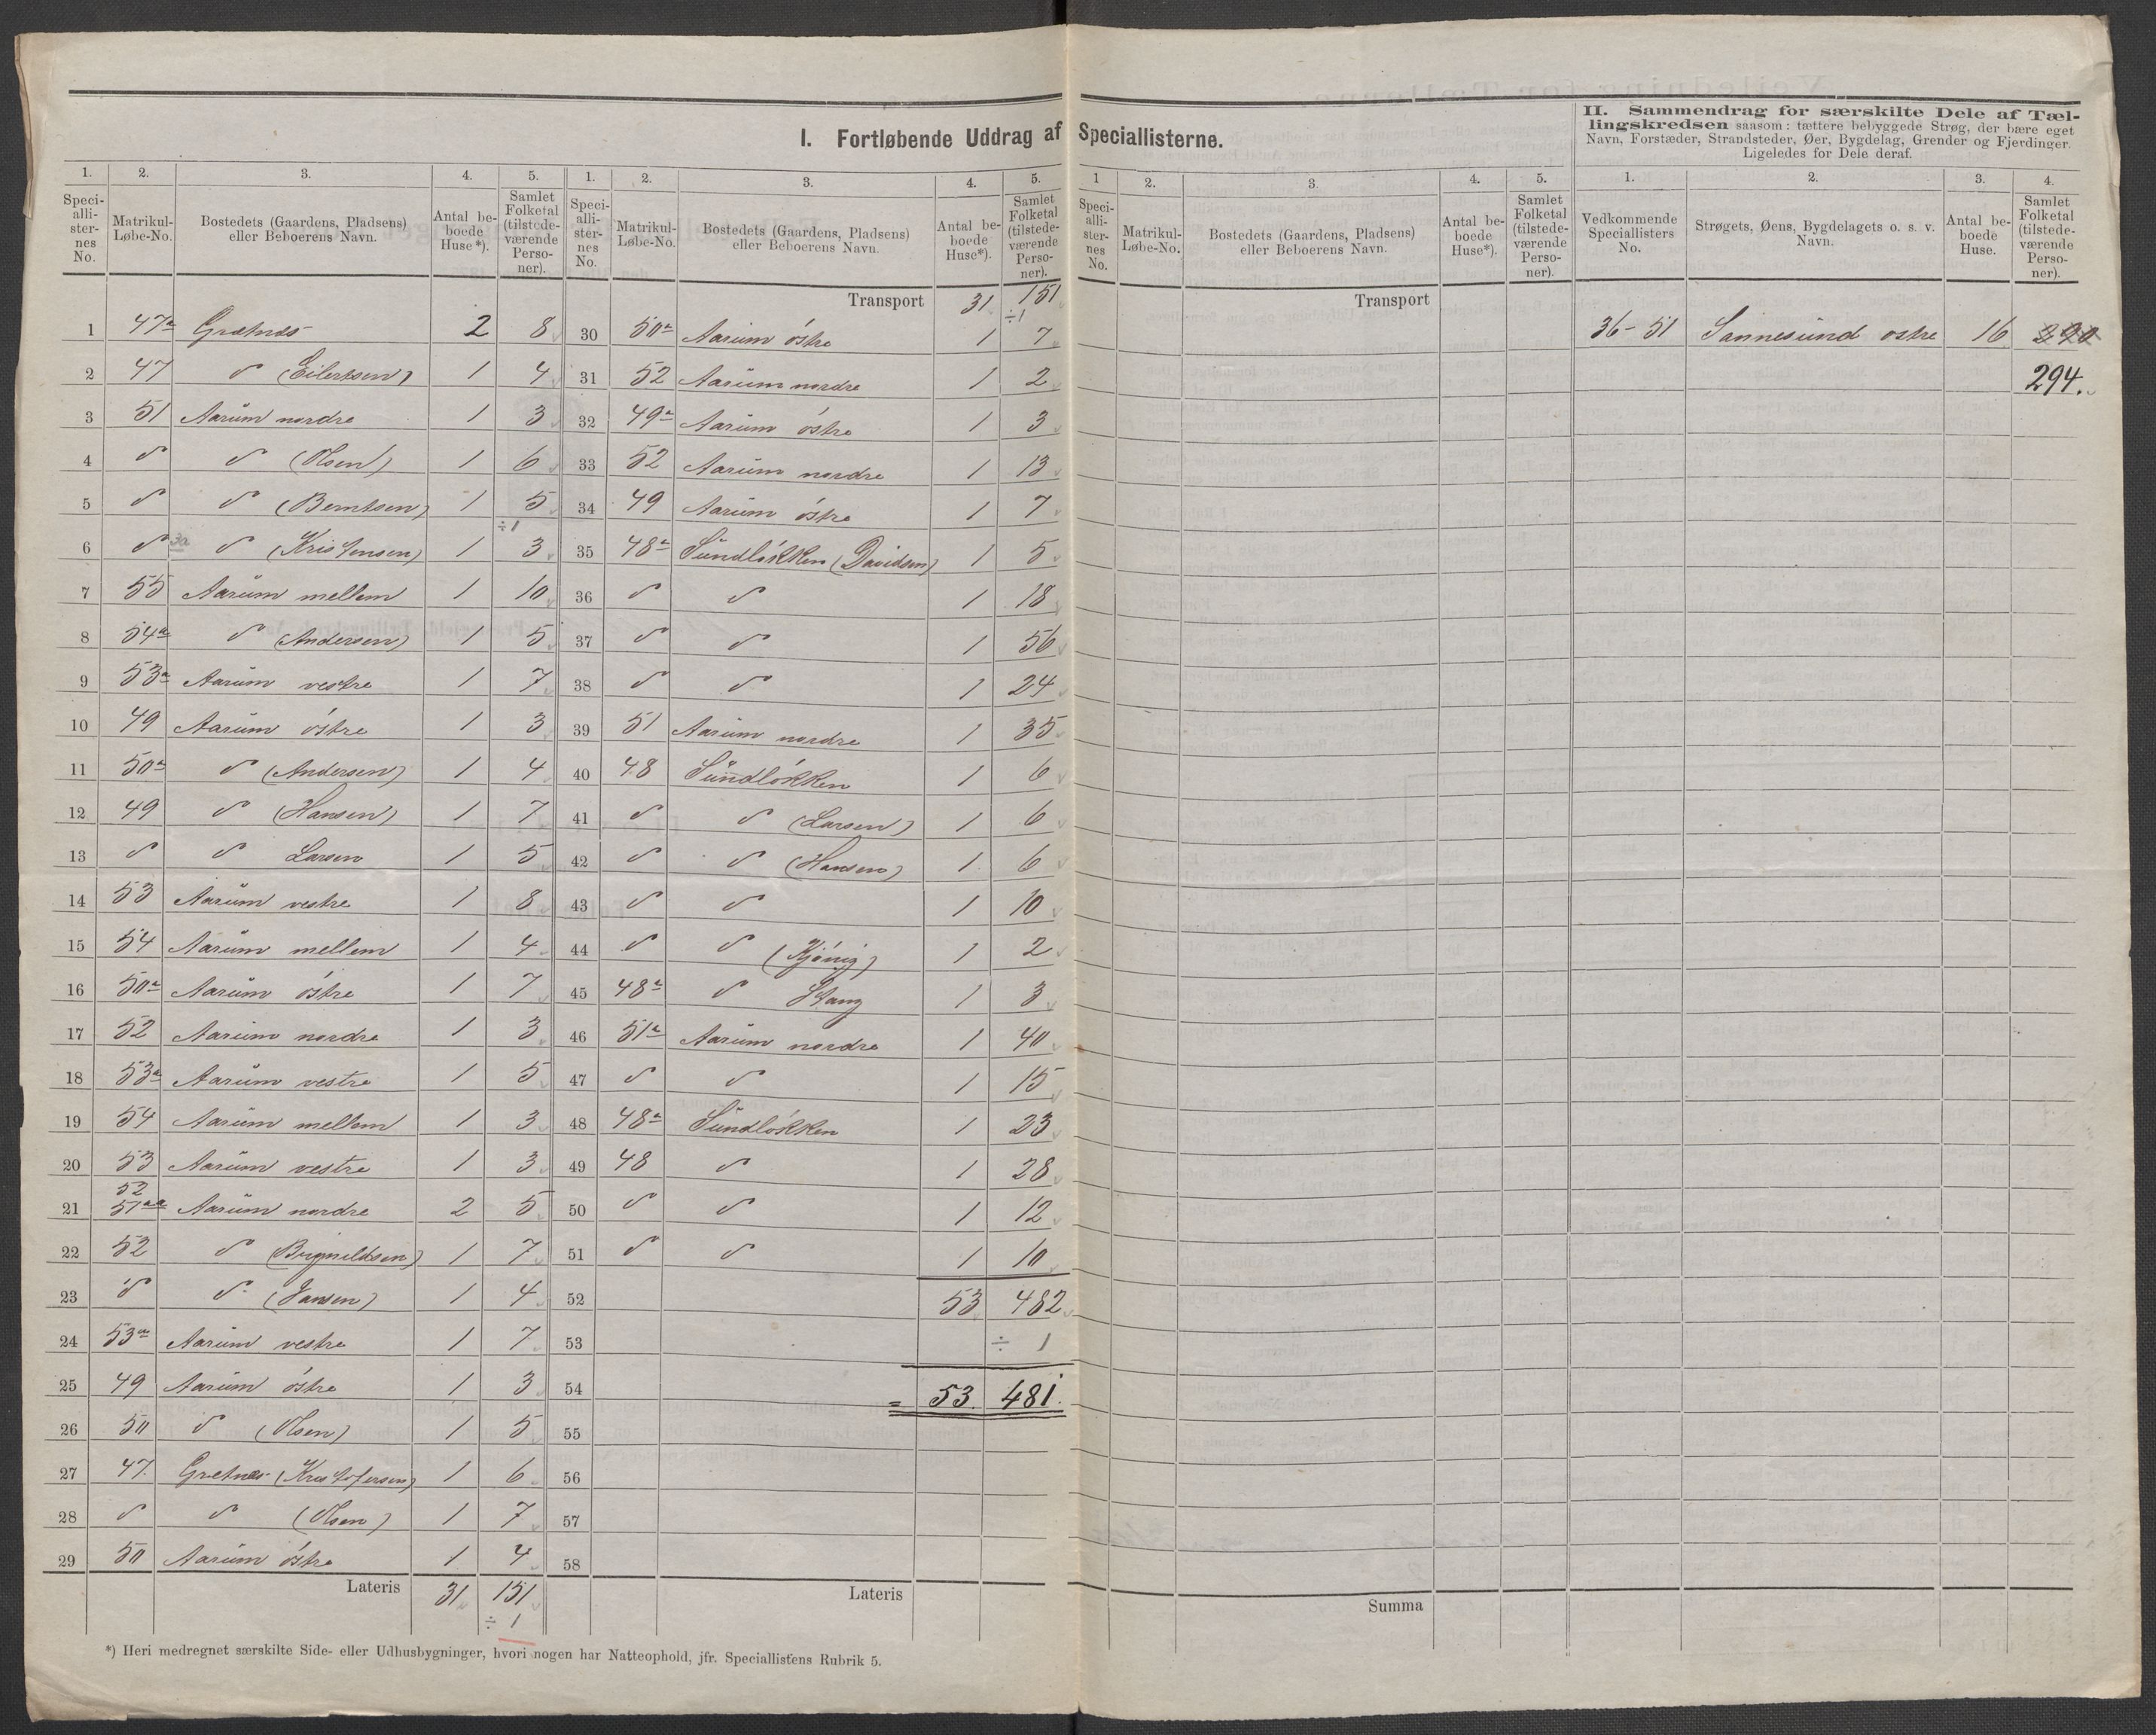 I. Fortløbende Uddrag af Speciallisterne.
II. Sammendrag for særskilte Dele af Tællingskredsen saasom: tættere bebyggede Strøg, der bære eget Navn, Forstæder, Strandsteder, Øer, Bygdelag, Grender og Fjerdinger. Ligeledes for Dele deraf.
1. 2. 3. 4. 5.
Speciallisternes No. Matrikul-Løbe-No. Bostedets (Gaardens, Pladsens) eller Beboerens Navn. Antal beboede Huse*). Samlet Folketal (tilstedeværende Personer).
1 47a Grætnes 2 8
2 47 " (Eilertsen) 1 4
3 51 Aarum nordre 1 3
4 " " (Olsen) 1 6
5 " " (Berntsen) 1 5
÷1
6 " " (Kristensen) 1 3
7 55 Aarum mellem 1 10
8 54a " (Andersen) 1 5
9 53a Aarum vestre 1 7
10 49 Aarum östre 1 3
11 50a " (Andersen) 1 4
12 49 " (Hansen) 1 7
13 " " Larsen 1 5
14 53 Aarum vestre 1 8
15 54 Aarum mellem 1 4
16 50a Aarum östre 1 7
17 52 Aarum nordre 1 3
18 53a Aarum vestre 1 5
19 54 Aarum mellem 1 3
20 53 Aarum vestre 1 3
52
21 51aa Aarum nordre 2 5
22 52 " 1 7
23 " " (Jansen) 1 4
24 53a Aarum vestre 1 7
25 49 Aarum östre 1 3
26 50 " (Olsen) 1 5
27 47. Gretnes (Kristofersen) 1 6
28 " " (Olsen) 1 7
29 50 Aarum östre 1 4
Lateris 31 151
÷ 1
1. 2. 3. 4. 5.
Speciallisternes No. Matrikul-Løbe-No. Bostedets (Gaardens, Pladsens) eller Beboerens Navn. Antal beboede Huse*). Samlet Folketal (tilstedeværende Personer).
Transport 31 151
÷1
30 50a Aarum östre 1 7
31 52 Aarum nordre 1 2
32 49a Aarum östre 1 3
33 52 Aarum nordre 1 13
34 49 Aarum östre 1 7
35 48a Sundlökken (Davidsen) 1 5
36 " " 1 18
37 " " 1 56
38 " " 1 24
39 51 Aarum nordre 1 35
40 48 Sundlökken 1 6
41 " " (Larsen) 1 6
42 " " (Hansen) 1 6
43 " " 1 10
44 " " (Kjönig) 1 2
45 48a " Stang 1 3
46 51a Aarum nordre 1 40
47 " " 1 15
48 48a Sundlökken 1 23
49 48 " 1 28
50 " " 1 12
51 " " 1 10
52 53 482
53 ÷ 1
54 = 53. 481.
55
56
57
58
Lateris
1 2. 3. 4. 5.
Speciallisternes No. Matrikul-Løbe-No. Bostedets (Gaardens, Pladsens) eller Beboerens Navn. Antal beboede Huse*). Samlet Folketal (tilstedeværende Personer).
Transport
Summa
1. 2. 3. 4.
Vedkommende Speciallisters No. Strøgets, Øens, Bygdelagets o. s. v. Navn. Antal beboede Huse. Samlet Folketal (tilstedeværende Personer).
36-51 Sannesund östre 16 290
294.
*) Heri medregnet særskilte Side- eller Udhusbygninger, hvori nogen har Natteophold, jfr. Speciallistens Rubrik 5.